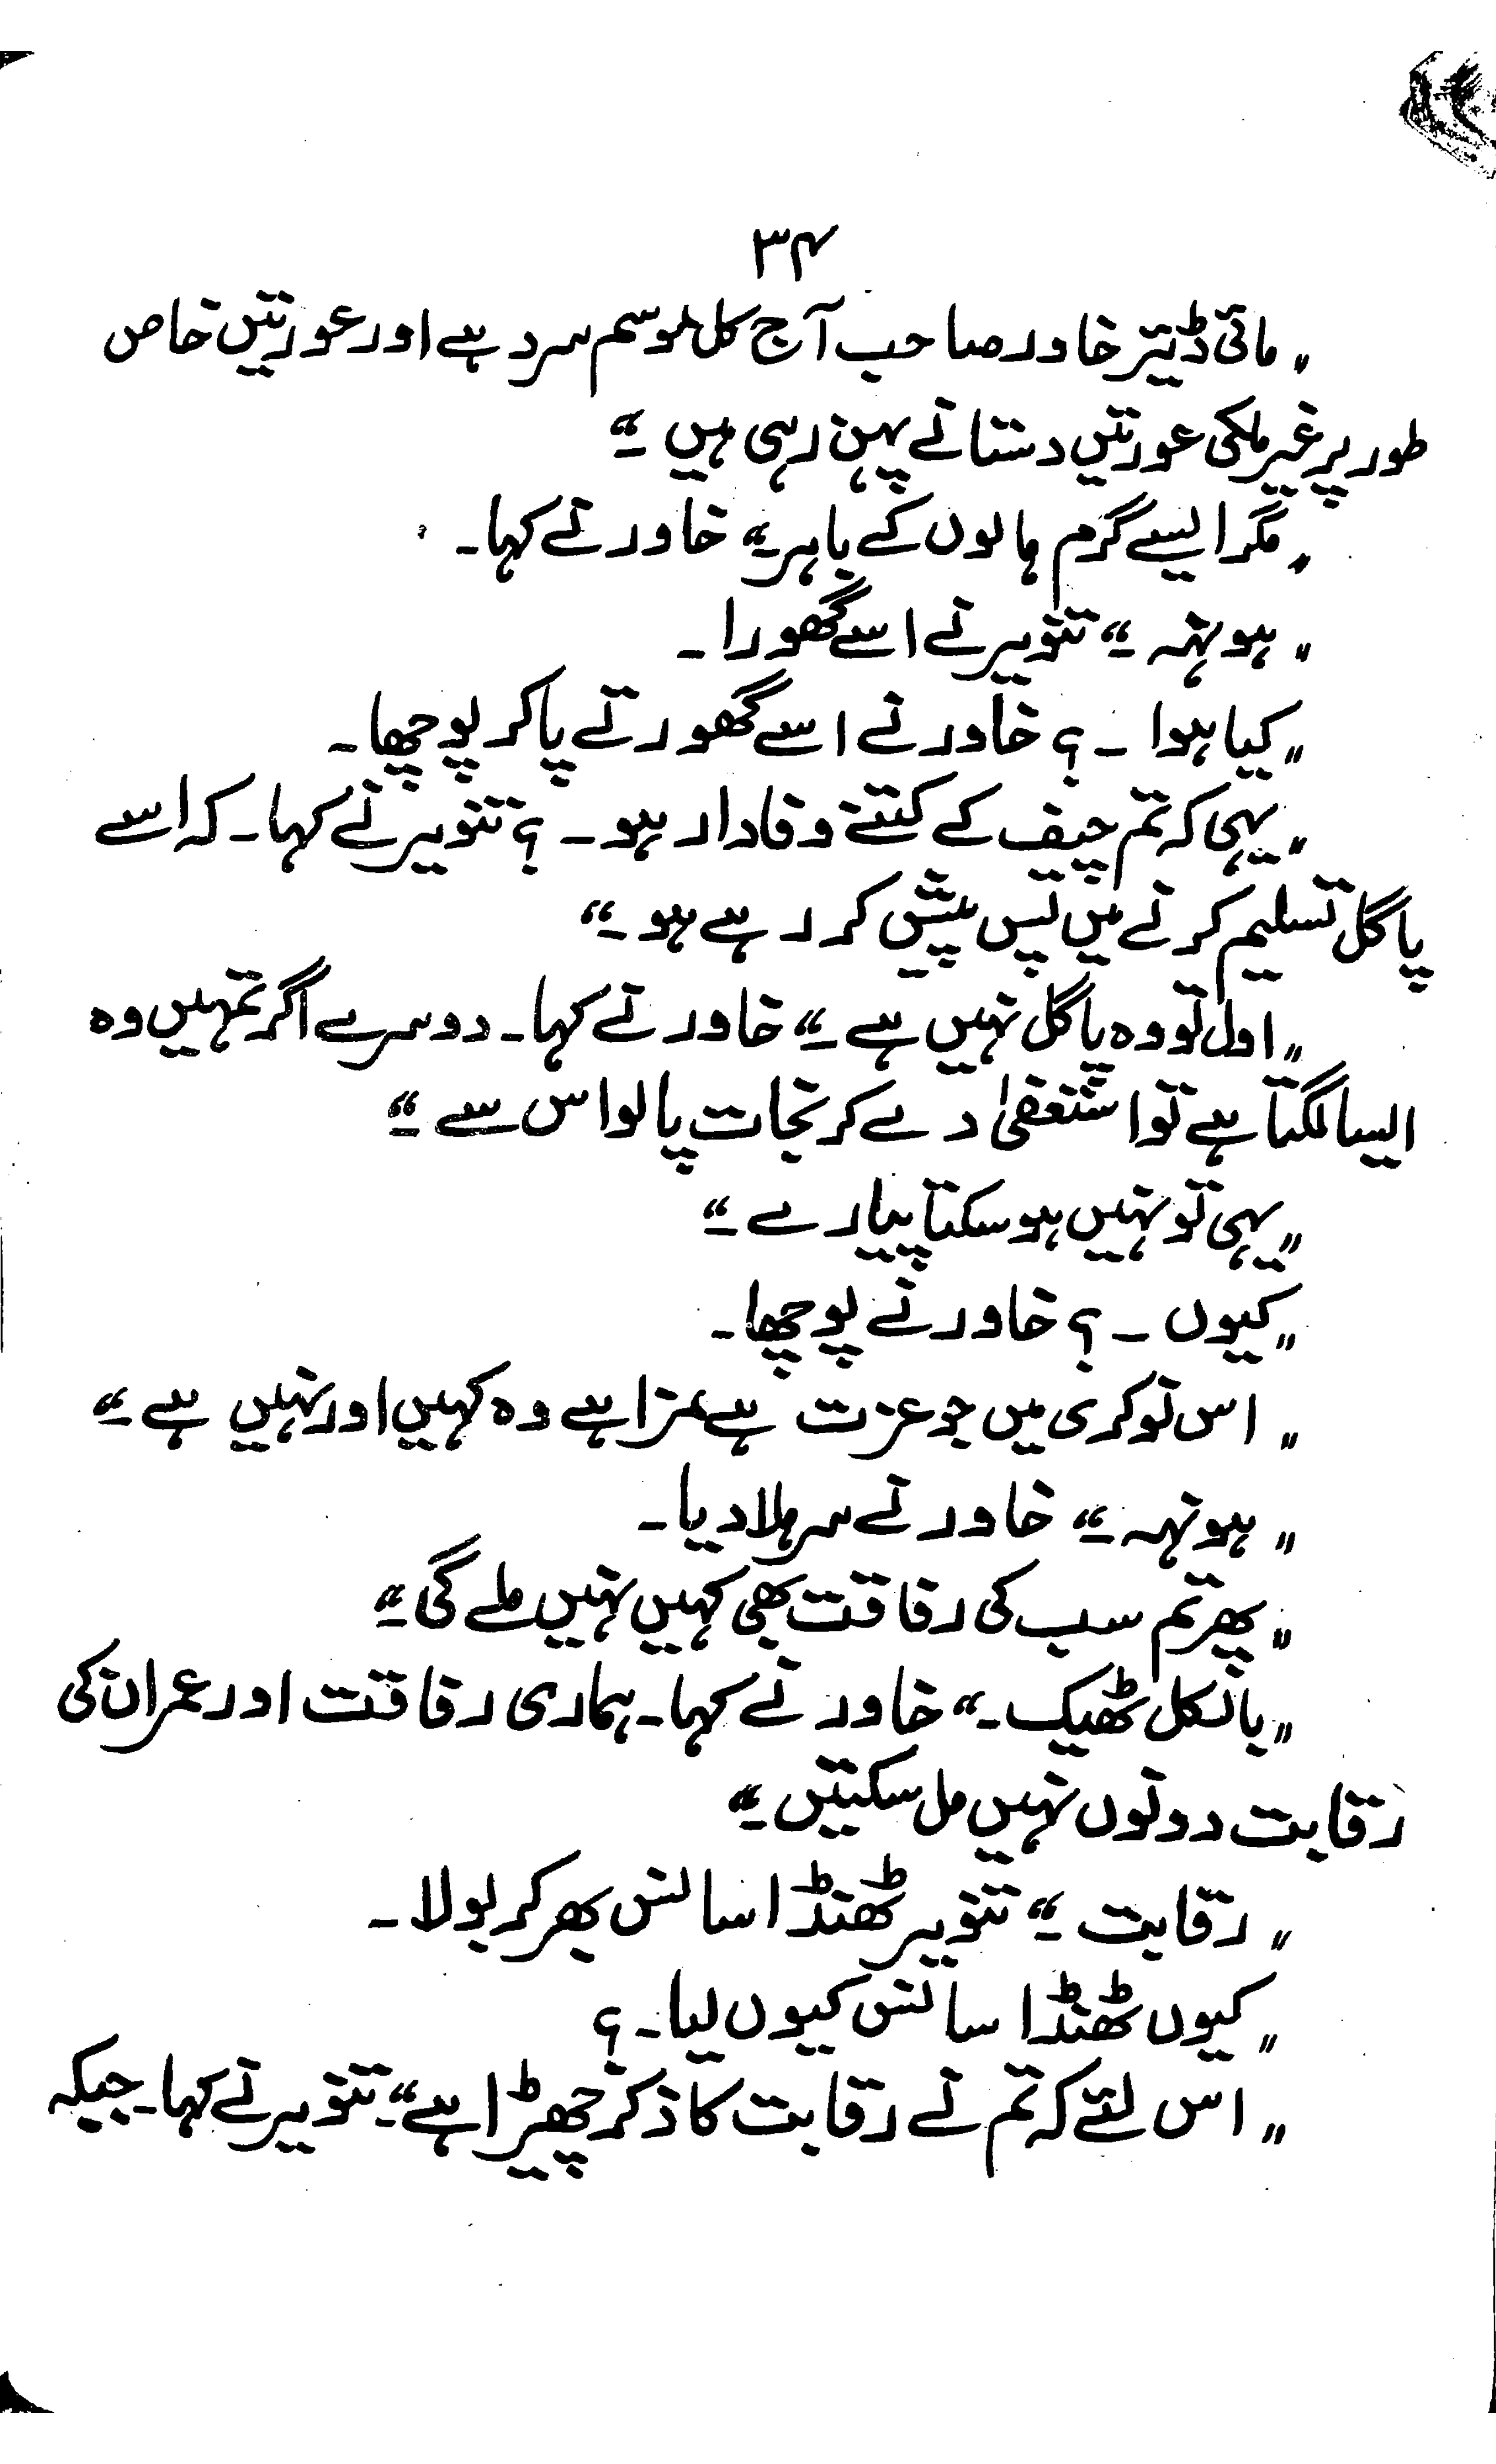 ۳۴
"مائی ڈیئر خاور صاحب آج کل موسم سرد ہے اور عورتیں خاص
طور پر غیر ملکی عورتیں دستانے پہن رہی ہیں۔"
"مگر ایسے گرم ہالوں کے باہر۔" خاور نے کہا۔
"ہونہہ۔" تنویر نے اسے گھورا۔
"کیا ہوا ۔؟ خاور نے اسے گھورتے پا کر پوچھا۔
"یہی کہ تم چیف کے کتنے وفادار ہو ۔؟ تنویر نے کہا۔ کہ اسے
پاگل تسلیم کرنے میں پس پیش کر رہے ہو۔"
"اول تو وہ پاگل نہیں ہے۔" خاور نے کہا۔ دوسرے اگر تمہیں وہ
ایسا لگتا ہے تو استعفیٰ دے کر نجات پا لو اس سے۔"
"یہی تو نہیں ہو سکتا پیارے۔"
"کیوں ۔؟ خاور نے پوچھا۔
"اس نوکری میں جو عزت ہے مزا ہے وہ کہیں اور نہیں ہے۔"
"ہونہہ۔" خاور نے سر ہلا دیا۔
"پھر تم سب کی رفاقت بھی کہیں نہیں ملے گی۔"
"بالکل ٹھیک۔" خاور نے کہا۔ ہماری رفاقت اور عمران کی
رقابت دونوں نہیں مل سکتیں۔"
"رقابت۔" تنویر ٹھنڈا سانس بھر کر بولا۔
"کیوں ٹھنڈا سانس کیوں لیا۔؟
"اس لئے کہ تم نے رقابت کا ذکر چھیڑا ہے"۔ تنویر نے کہا۔ جبکہ